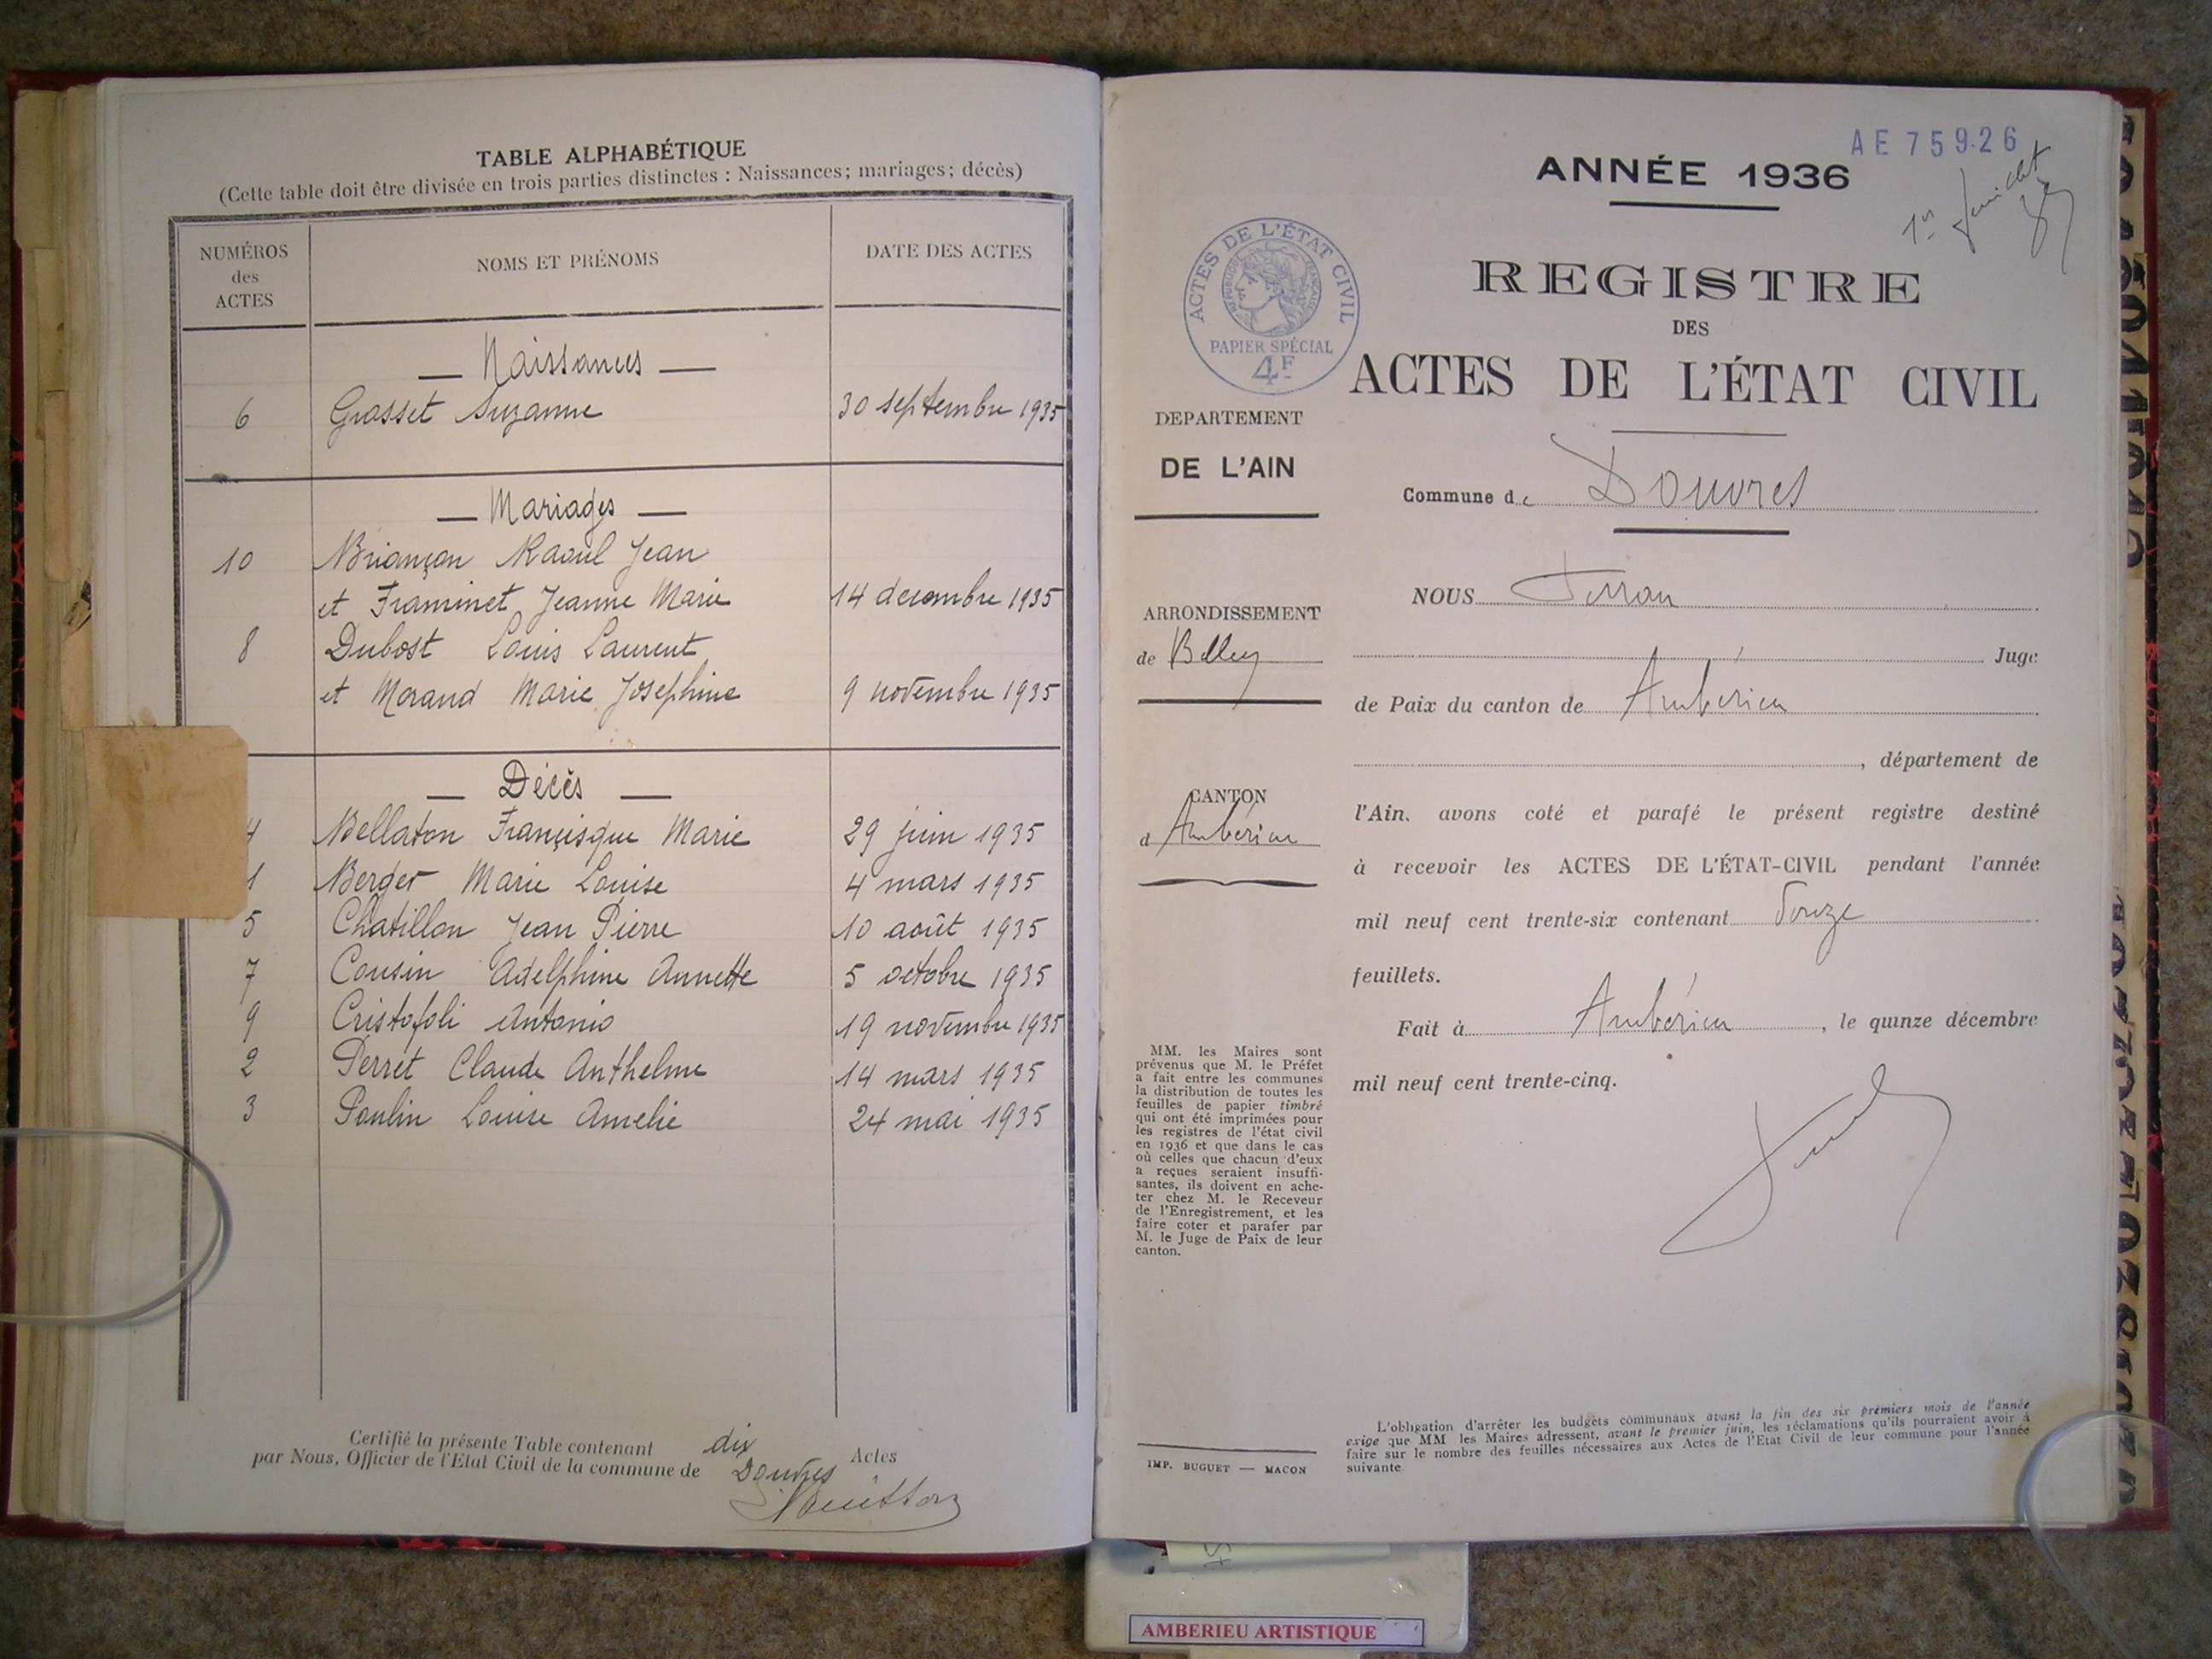 TABLE ALPHABÉTIQUE
(Cette table doit être divisée en trois parties distinctes : Naissances; mariages; décès)
NUMÉROS
des
ACTES
NOMS ET PRÉNOMS
DATE DES ACTES
— Naissances —
6 Grasset Suzanne 30 septembre 1935
— Mariages —
10 Briançon Raoul Jean
et Framinet Jeanne Marie 14 decembre 1935
8 Dubost Louis Laurent
et Morand Marie Josephine 9 novembre 1935
— Décès —
4 Bellaton Françisque Marie 29 juin 1935
1 Berger Marie Louise 4 mars 1935
5 Chatillon Jean Pierre 10 août 1935
7 Cousin Adelphine Annette 5 octobre 1935
9 Cristofoli Antonio 19 novembre 1935
2 Perret Claude Anthelme 14 mars 1935
3 Poulin Louise Amelie 24 mai 1935
Certifié la présente Table contenant dix Actes
par Nous, Officier de l'Etat Civil de la commune de Douvres
AE 75926
ANNÉE 1936
1er feuillet
ACTES DE L'ÉTAT CIVIL
RÉPUBLIQUE FRANÇAISE
PAPIER SPÉCIAL
4F
REGISTRE
DES
ACTES DE L'ÉTAT CIVIL
DEPARTEMENT
DE L'AIN
Commune de Douvres
ARRONDISSEMENT
de Belley
CANTON
d'Ambérieu
NOUS
Juge
de Paix du canton de Ambérieu
, département de
l'Ain. avons coté et parafé le présent registre destiné
à recevoir les ACTES DE L'ÉTAT-CIVIL pendant l'année
mil neuf cent trente-six contenant Douze
feuillets.
Fait à Ambérieu, le quinze décembre
mil neuf cent trente-cinq.
MM. les Maires sont
prévenus que M. le Préfet
a fait entre les communes
la distribution de toutes les
feuilles de papier timbré
qui ont été imprimées pour
les registres de l'état civil
en 1936 et que dans le cas
où celles que chacun d'eux
a reçues seraient insuffi-
santes, ils doivent en ache-
ter chez M. le Receveur
de l'Enregistrement, et les
faire coter et parafer par
M. le Juge de Paix de leur
canton.
IMP. BUGUET — MACON
L'obligation d'arrêter les budgets communaux avant la fin des six premiers mois de l'année
exige que MM les Maires adressent, avant le premier juin, les réclamations qu'ils pourraient avoir à
faire sur le nombre des feuilles nécessaires aux Actes de l'Etat Civil de leur commune pour l'année
suivante
AMBERIEU ARTISTIQUE